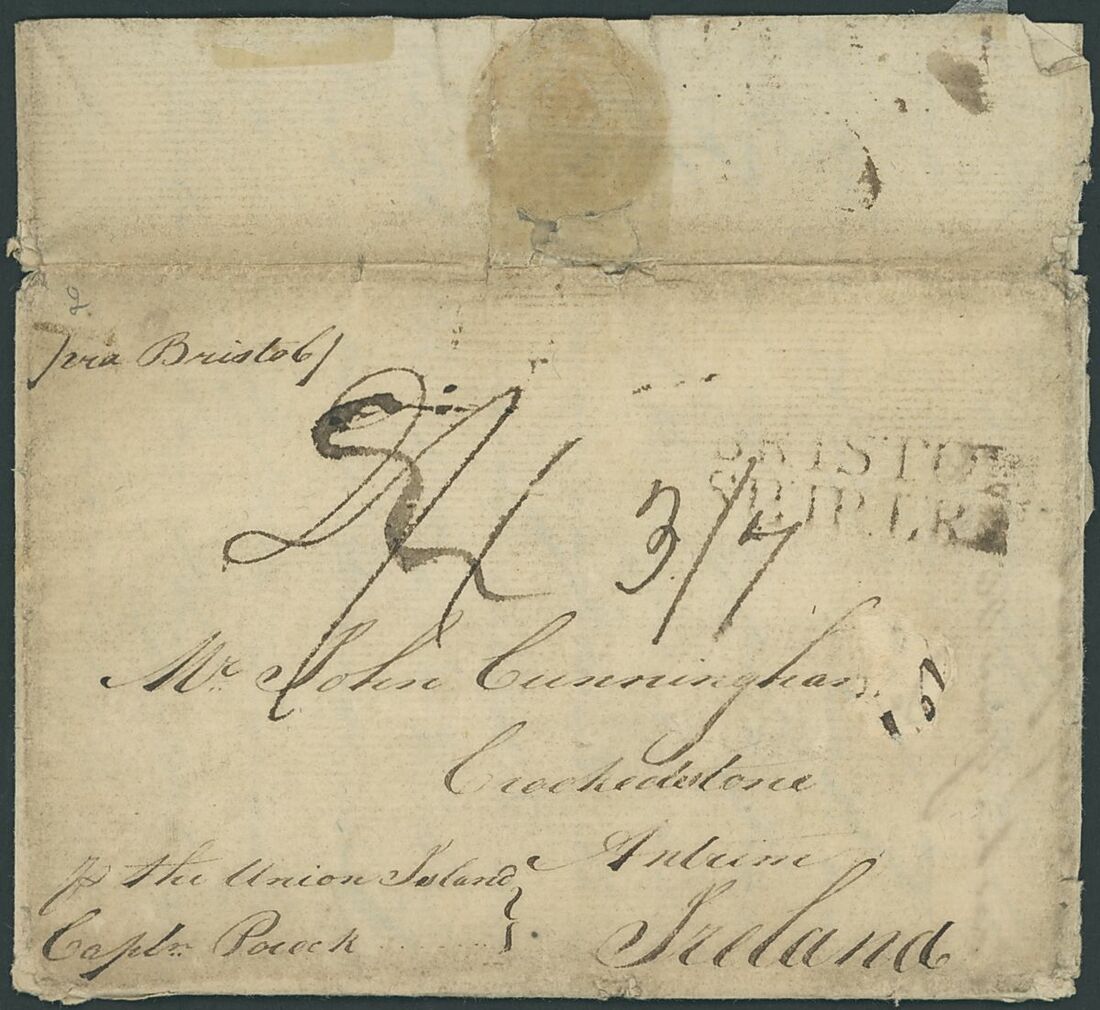 via Bristol
3/7
BRISTOL
SHIP LRE
Mr. John Cunningham
Crookedstone
Antrim
Ireland
p the Union Island
Captn. Pocock